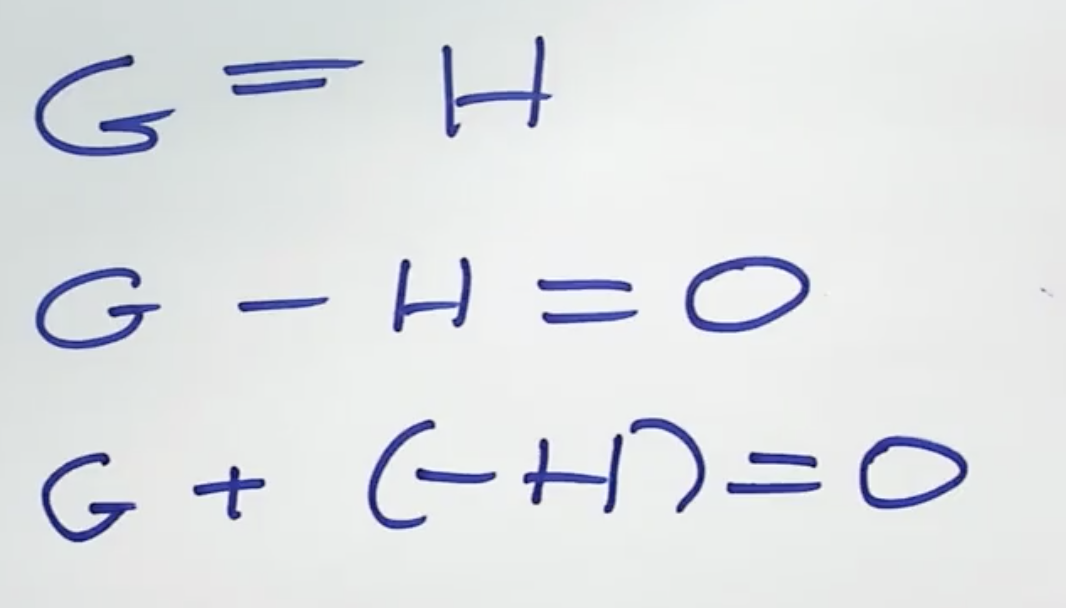 G = H
G - H = 0
G + (-H) = 0